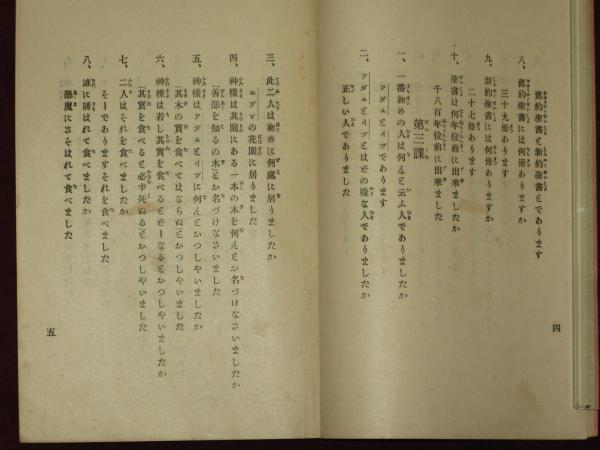 舊約聖書と新約聖書とであります
八、舊約聖書には何冊ありますか
三十九冊あります
九、新約聖書には何冊ありますか
二十七冊あります
十、聖書は何年位前に出來ましたか
千八百年位前に出來ました
第三課
一、一番初めの人は何んと云ふ人でありましたか
アダムとイブとであります
二、アダムとイブとはどの樣な人でありましたか
正しい人でありました
四
三、此二人は初めに何處に居りましたか
エデンの花園に居りました
四、神樣は其園にある一本の木を何んとお名づけなさいましたか
「善惡を知るの木」とお名づけなさいました
五、神樣はアダムとイブに何んとおつしやいましたか
「其木の實を食べてはならぬ」とおつしやいました
六、神樣は若し其實を食べるとどーなるとおつしやいましたか
「其實を食べると必ず死ぬる」とおつしやいました
七、二人はそれを食べましたか
そーでありますそれを食べました
八、誰に誘はれて食べましたか
惡魔にさそはれて食べました
五